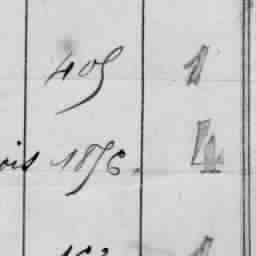 405 1
ois 1876. 4